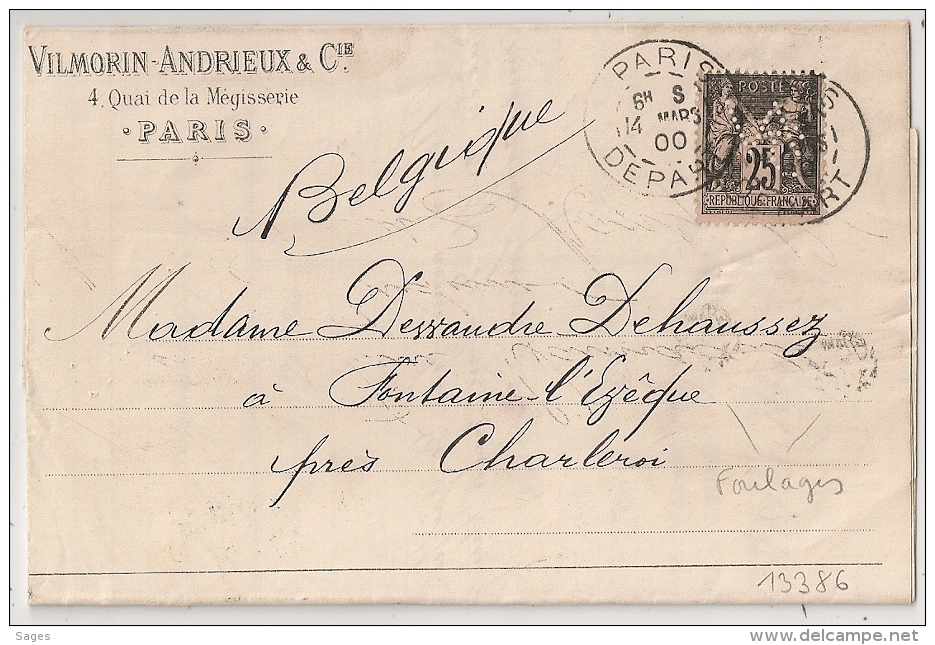 VILMORIN-ANDRIEUX & CIE.
4. Quai de la Mégisserie
· PARIS ·
Belgique
PARIS
6H S
14 MARS
00
DEPART
POSTE
25
REPUBLIQUE FRANÇAISE
Madame Dessandre Dehaussez
à Fontaine-l'Evêque
près Charleroi
Foulages
13386
Sages
www.delcampe.net